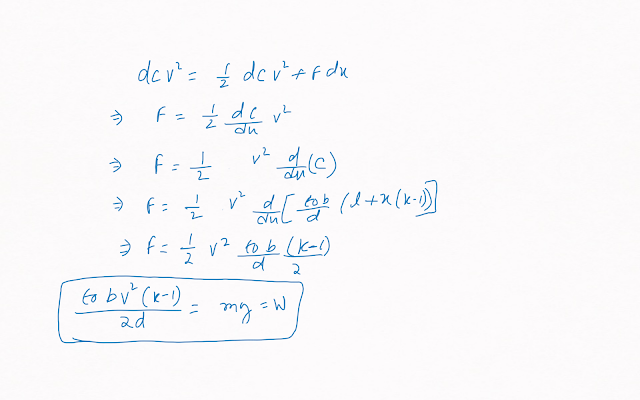 dcv² = 1/2 dcv² + F dx
⇒ F = 1/2 dc/dx v²
⇒ F = 1/2 v² d/dx (C)
⇒ F = 1/2 v² d/dx [ ε0b/d (l + x(k-1)) ]
⇒ F = 1/2 v² ε0b/d (k-1)/2
ε0bv²(k-1)/2d = mg = W